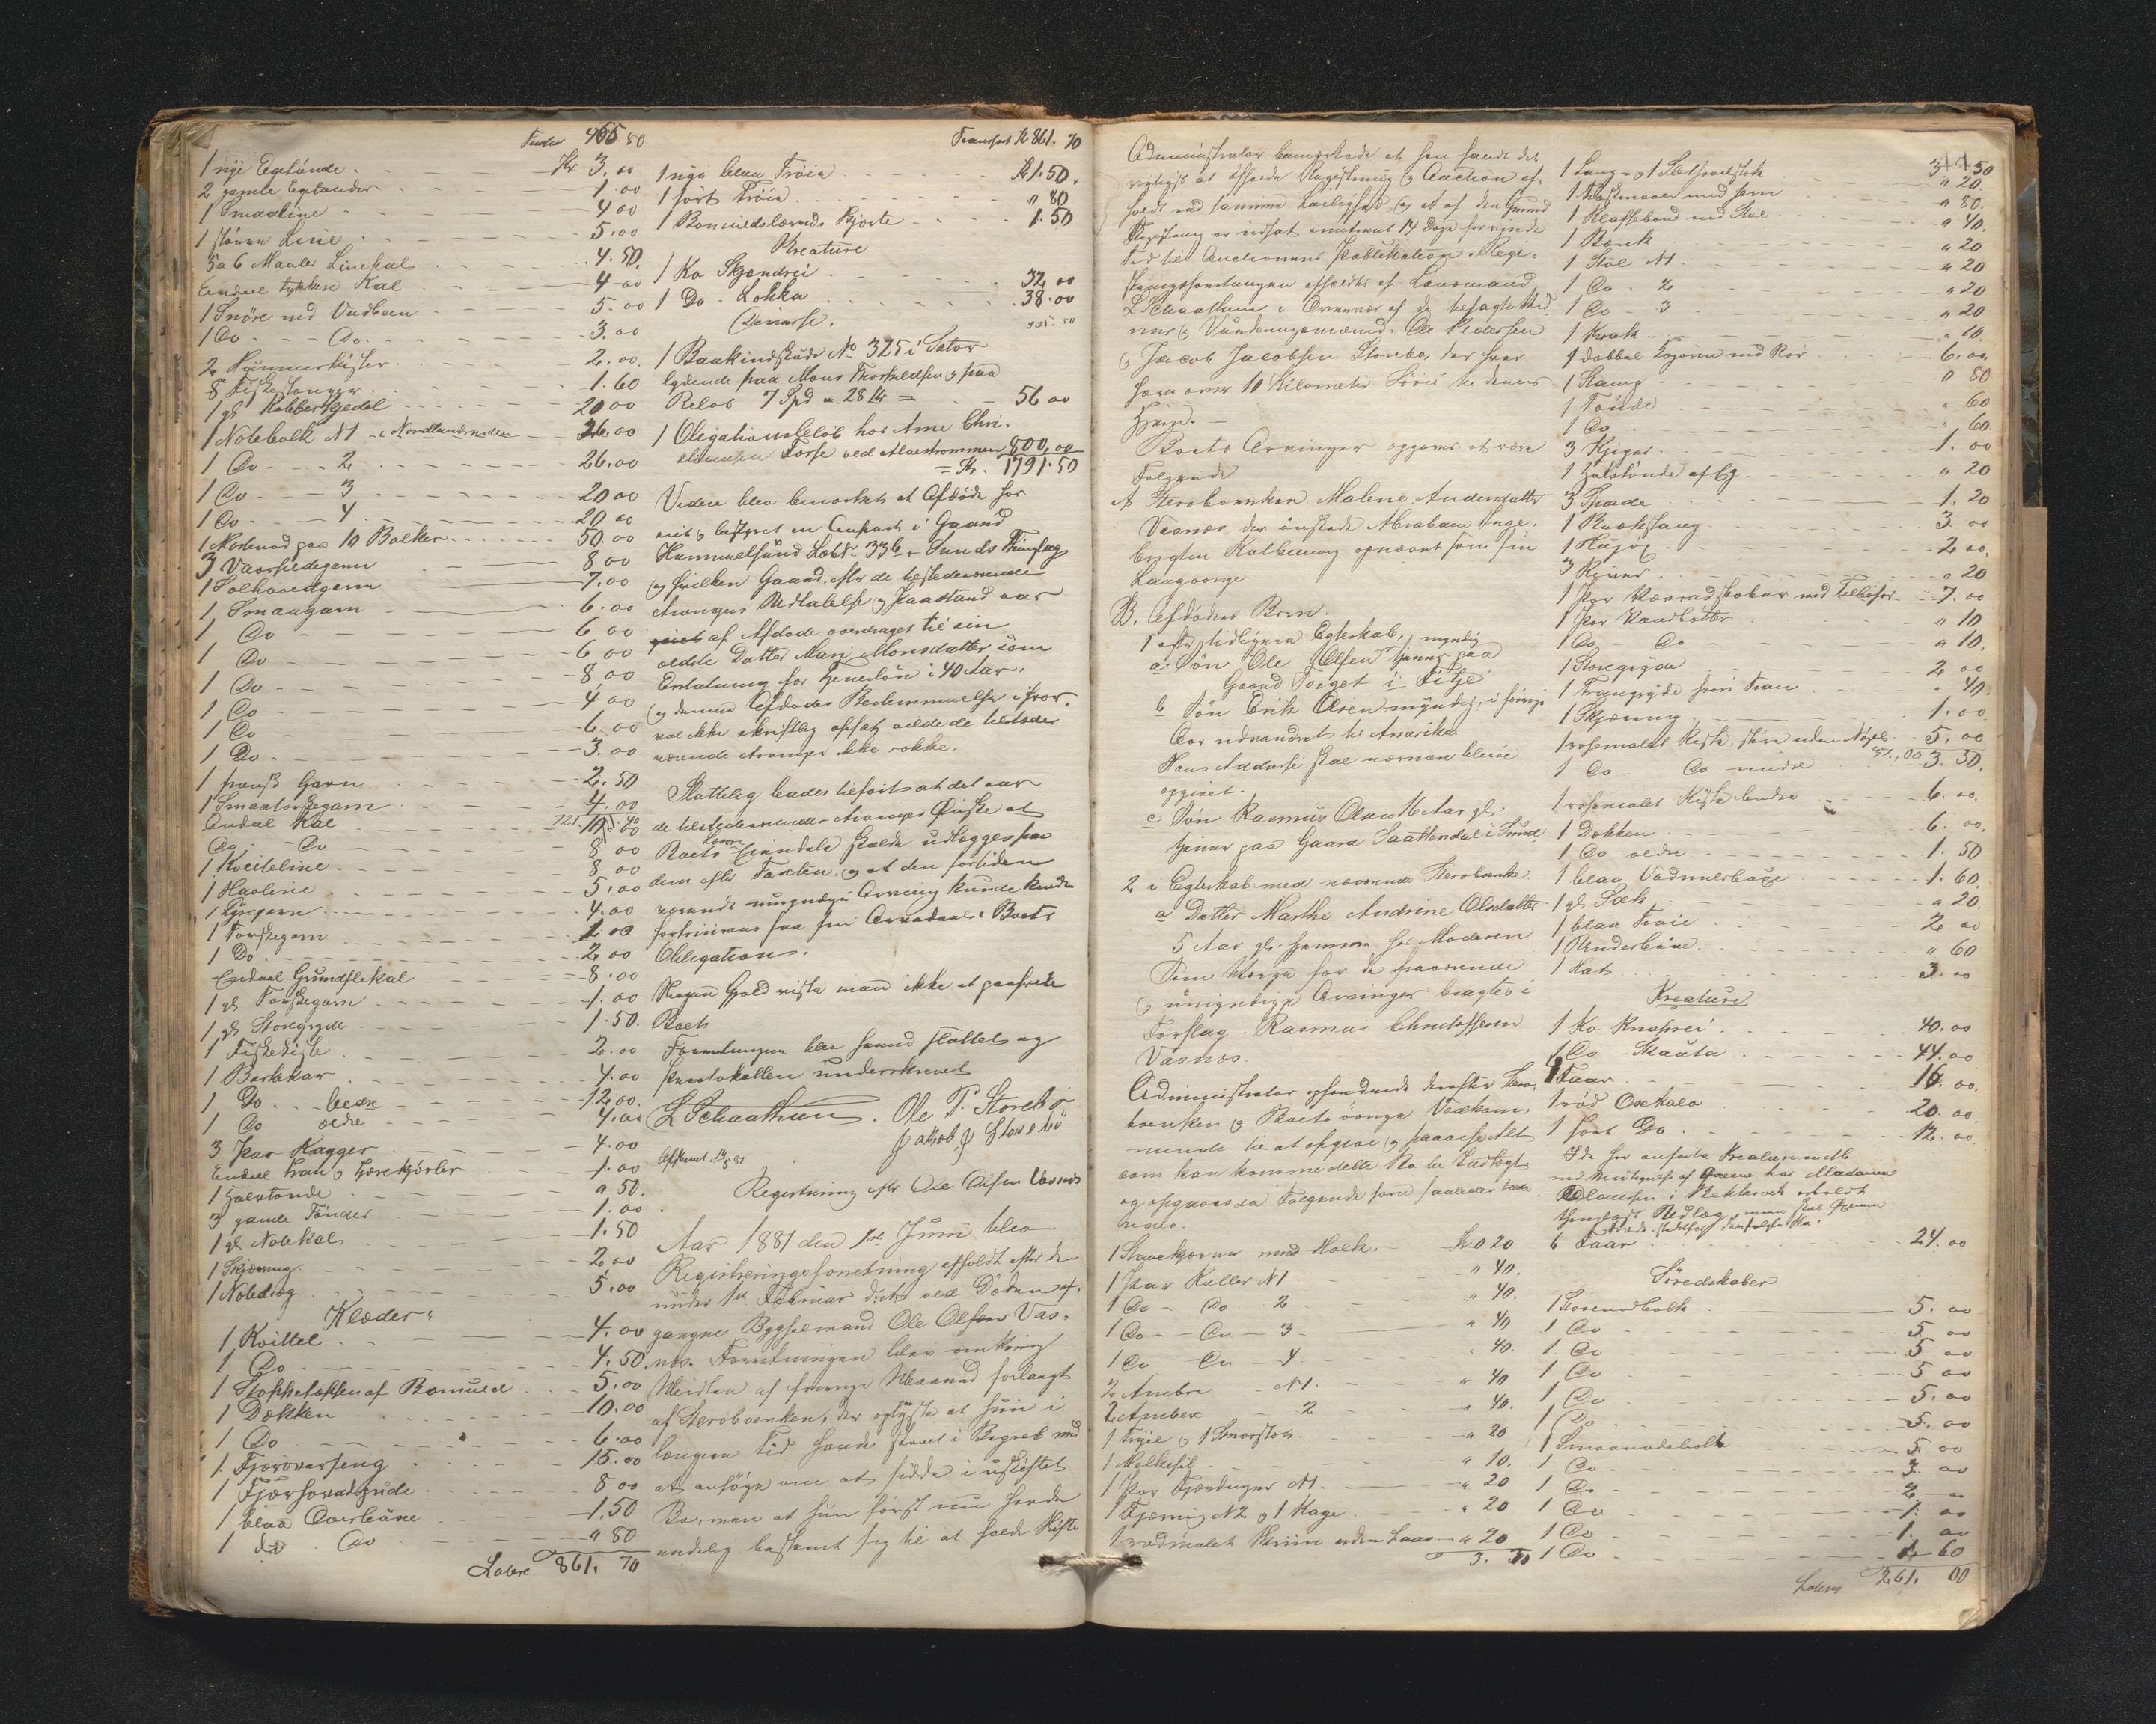 Transport 455 80
1 nye Egetønde Kr 3.00
2 gamle Egetønder 1.00
1 Smaaline 4 00
1 større Line 5.00
5 a 6 Maaler Linekal 4.50
Endeel tykkere Kal 4.00
1 Snøre med Vadbeen 5.00
1 Do - Do 3.00
2 Rummerkister 2.00
8 Fiskestænger 1.60
1 gl Kobberkjedel 20 00
1 Notebolk N 1 Nordlandsnoten 36.00
1 Do - 2 26.00
1 Do - 3 20 00
1 Do - 4 20 00
1 Mortenod paa 10 Bolker 50.00
3 Vaarsildegarn 8 00
1 Solhovedgarn 7.00
1 Smaagarn 6.00
1 Do 6 00
1 Do 6 00
1 Do 8 00
1 Do 4 00
1 Do 6 00
1 Do 3.00
1 Garn 2.50
1 Smaatorskegarn 4.00
Endeel Kal 10.00
Do - Do 8 00
1 Kveiteline 8 00
1 Havline 5.00
1 garn 4.00
1 Torskegarn 2 00
1 Do 2 00
Endeel Grundslekal 8.00
1 gl Torskegarn 1.00
1 gl Storegryde 1.50
1 Fiskekiste 2.00
1 Barkekar 4.00
1 Do bedre 12.00
1 Do ældre 4.00
3 Par Kagger 4.00
Endeel Tran og Tjærekjørler 1.00
1 Halvtønde " 50
3 gamle Tønder 1.00
1 gl Notekal 1.50
1 Skjæring 2.00
1 Notedrag 5.00
Klæder:
1 Kvittel 4.00
1 Do 4.50
1 Stoppetæppe af Bomuld 5.00
1 Dækken 10.00
1 Do 6.00
1 Fjæroverseng 15.00
1 Fjærhovedpude 8 00
1 blaa Overbuxe 1.50
1 do Do " 80
Latere 861. 70
Transport Kr 861. 70
1 nye blaa Trøie Kr 1.50
1 sort Trøie " 80
1 Bomuldslærreds Skjorte 1.50
Kreature
1 Ko Skjændrei 32 00
1 Do - Lokka 38.00
Diverse.
1 Bankindskud No 325 i Sator
lydende paa Mons Thorsteldsen og paa
Beløb 7 Spd = 28 Kr = 56 00
1 Obligationsbeløb hos Arne Chri-
stiansen Torse ved Alvestrommen 800,00
= Kr. 1791.50
Videre blev bemærket at Afdøde har
eiet og bestyret en Anpart i Gaard
Hummelsund Løbe 336 Sunds Thinglag
og hvilken Gaard efter de tilstedeværende
Arvingers Udtalelse og Paastand var
af Afdøde overdraget til sin
ældste Datter Mari Monsdatter som
Erstatning for Tjeneløn i 40 Aar,
og denne Afdødes Bestemmelse i hvor-
vel ikke skriftlig opsat vilde de tilstede-
værende Arvinger ikke rokke.
Sluttelig bades tilført at det var
de tilstedeværende Arvingers Ønske at
Boets Eiendele skulde udlægges paa
dem efter Taxten, og at den fortiden
værende umyndige Arving kunde
faa sin Arvedeel i Boets
Obligation.
Nogen Gjæld vidste man ikke at paahvile
Boet
Forretningen blev hermed sluttet og
Protokollen underskrevet
L Schaathun. Ole P. Storebø
Jakob J Storebø
Registrering efter Ole Olsen Vasnes
Aar 1881 den 1st Juni blev
Registreringsforretning afholdt efter den
under 1st Februar d.A. ved Døden af-
gangne Bygselmand Ole Olsen Vas-
næs. Forretningen blev omkring
Midten af forrige Maaned forlangt
af Sterbbenken, der oplyste at hun i
længere Tid havde staaet i Begreb med
at ansøge om at sidde i uskiftet
Bo, men at hun først nu havde
endelig bestemt sig til at holde Skifte
Administrator bemærkede at han fandt det
rigtigst at afholde Registrering og Auction af-
holdt ved samme Leilighed og at af den Grund
Forretning er udsat omtrent 14 Dage formende
Tid til Auctionens Publikation. Regi-
streringsforretningen afholdtes af Lensmand
L Schaathun i Overvær af de befragtede Vid-
ner og Vurderingsmænd. Ole Pedersen
og Jacob Jacobsen Storebø der har
Farm over 10 Kilometer Søvei til denne
Boets Arvinger opgaves at være
Følgende
A Sterbbænken Malene Andersdatter
Vesnæs der ønskede Abraham Inge-
brigtsen Kolbeinsvog opnævnt som sin
Laugværge
B. Afdødes Børn.
1 efter tidligere Egteskab, myndig
a Søn Ole Olsen tjener paa
Gaard Torget i Fitje
b Søn Erik Olsen myndig, i forrige
Aar udvandret til Amerika
Hans Addresse skal nærmere blive
opgivet.
c Søn Rasmus Olsen 16 Aar gl.
tjener paa Gaard Saattendal i Sund
2 i Egteskab med nærværende Sterbbænke
a Datter Marthe Andrine Olsdatter
5 Aar gl. hjemme hos Moderen
Som Værge for de fraværende
og umyndige Arvinger bragtes i
Forslag Rasmus Christoffersen
Vasnæs.
Administrator opfordrede derefter Sterb-
bænken og Boets øvrige Vedkom-
mende til at opgive og paavise Alt
som kan komme dette Bo til Indtægt
og opgaves da Følgende som saaledes
1 Stavekjærne med Holk Kr 0 20
1 Par Kuller N 1 " 40
1 Do - Do 2 " 40
1 Do - Do - 3 " 40
1 Do Do - 4 " 40
2 Ambre N 1 " 40
2 Ambere 2 " 40
1 Trøie og 1 Smørstok " 20
1 Melkesil " 10
1 Par Fjæringer N 1 " 20
1 Fjæring N 2 og 1 Kage " 20
1 rødmalet Skrin uden Laas " 20
3. 50
3 50
1 Lang og 1 Sletthøvelstok " 20
1 med Jern " 80
1 Klaffebord med Stol " 40
1 Bænk " 20
1 Stol N 1 " 20
1 Do - 2 " 20
1 Do - 3 " 20
1 Krak " 10
1 dobbel Kogovn med Rør 6.00
1 Stang " 80
1 Tønde " 60
1 Do " 60
3 Kjiger 1.00
1 Halvtønde af Eg " 20
3 Spade 1.20
1 Brækstang 3.00
1 Huføx 2 00
3 River " 20
1 Par Kærredskaber med Tilbehør 7.00
1 Par Vandbøtter " 10
1 Do - Do " 10
1 Storegryde 2 00
1 Trangryde hvori Tran " 40
1 Skjæring 1.00
1 rosemalet Kiste, større uden Nøgel 5.00
1 Do Do mindre 3.50
1 rosemalet Kiste bedre 6.00
1 Dækken 6.00
1 Do ældre 1.50
1 blaa Vadmelsbuxe 1.60
1 gl Sæk " 20
1 blaa Trøie 2 00
1 Underbuxe " 60
1 Hat 3.00
Kreature
1 Ko Knaprei 40.00
1 Do Skauta 44.00
4 Faar 16.00
1 rød Oxekalv 20.00
1 sort Do 12.00
I de her anførte Kreature
af har Madame
i Bekkervik erholdt
Kr.
6 Faar 24.00
Søredskaber
1 Storenodbolk 5.00
1 Do 5 00
1 Do 5 00
1 Do 5 00
1 Do 5.00
1 Do 5.00
1 Smaanotebolk 5 00
1 Do 3.00
1 Do 2 00
1 Do 1.00
1 Do 1.00
1 Do 1 60
Latere 261. 00